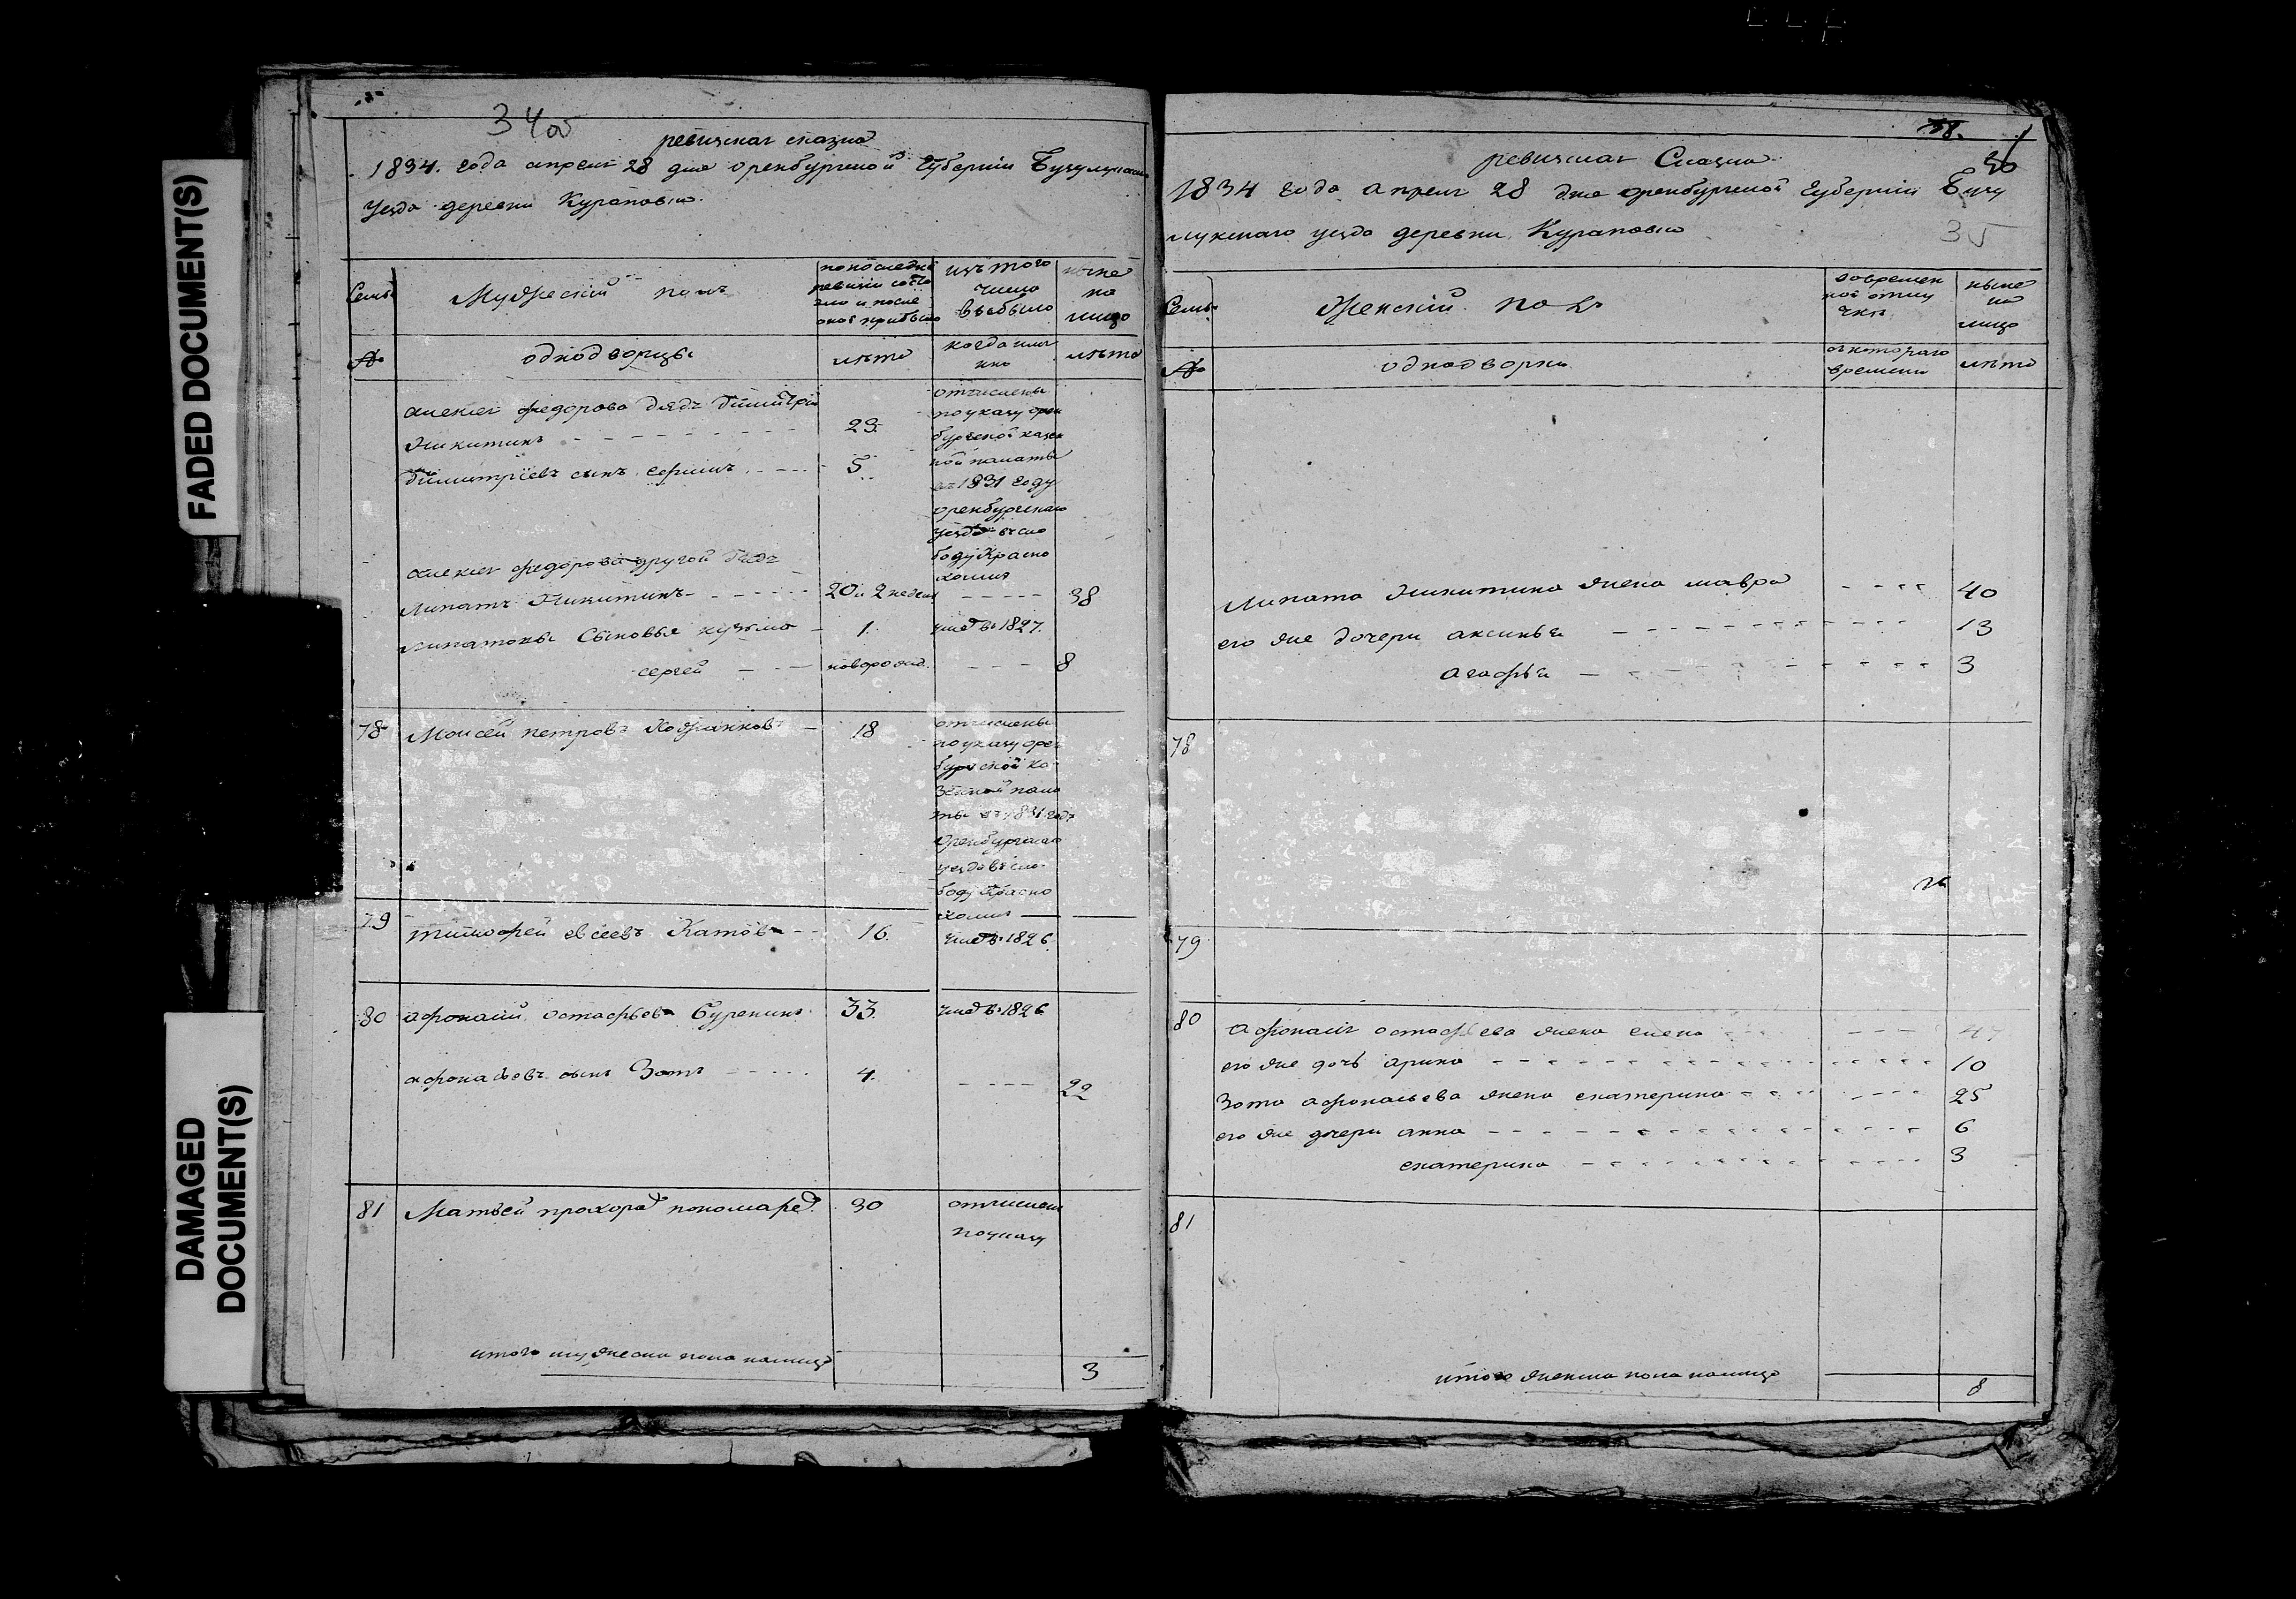 FADED DOCUMENT(S)
DAMAGED
DOCUMENT(S)
34об
ревизская сказка
1834. года апреля 28 дня оренбургской Губернии Бузулукского
уезда деревни Кураповки.
Семьи
Мужеский полъ
по последней
ревизии состо
яло и после
оной прибыло
изъ того
числа
выбыло
ныне
на
лицо
№
однодворцы
лѣта
когда имя
нно
лѣта
алексея федорова дядя димитрий
Никитинъ
23.
димитріевъ сынъ
5
отчислены
по указу орен
бургской казен
ной палаты
въ 1831 году
оренбургскаго
уезда въ сло
боду Красно
холмъ
алексея федорова другой дядя
липатъ Никитинъ
20 и 2 недели
38
липатовы Сыновья кузьма
1.
умеръ въ 1827.
сергей
новорожд.
8
78
Моисей петровъ
18
отчислены
по указу орен
бургской ка
зенной пала
ты въ 1831 годе
Оренбургскаго
уезда въ сло
боду Красно
холмъ
79
тимофей евсеевъ Катовъ
16.
умеръ в 1826.
80
афонасий остафьевъ Буренинъ
33.
умеръ в 1826
афонасьевъ сынъ Зотъ
4.
22
81
Матвей прохоровъ пономаревъ
30
отчислен
по указу
итого мужеска пола налицо
3
58.
50
ревизская Сказка
1834 года апреля 28 дня оренбургской губернии Бузу
лукскаго уезда деревни Кураповки
35
Семьи
Женский полъ
во времен
ной отлу
чкѣ
ныне
на
лицо
№
однодворки
съ котораго
времени
лѣта
липата Никитина жена мавра
40
его же дочери аксинья
13
агафья
3
78
79
80
афонасия остафьева жена елена
47
его же дочь арина
10
Зота афонасьева жена екатерина
25
его же дочери анна
6
екатерина
3
81
итого женска пола налицо
8